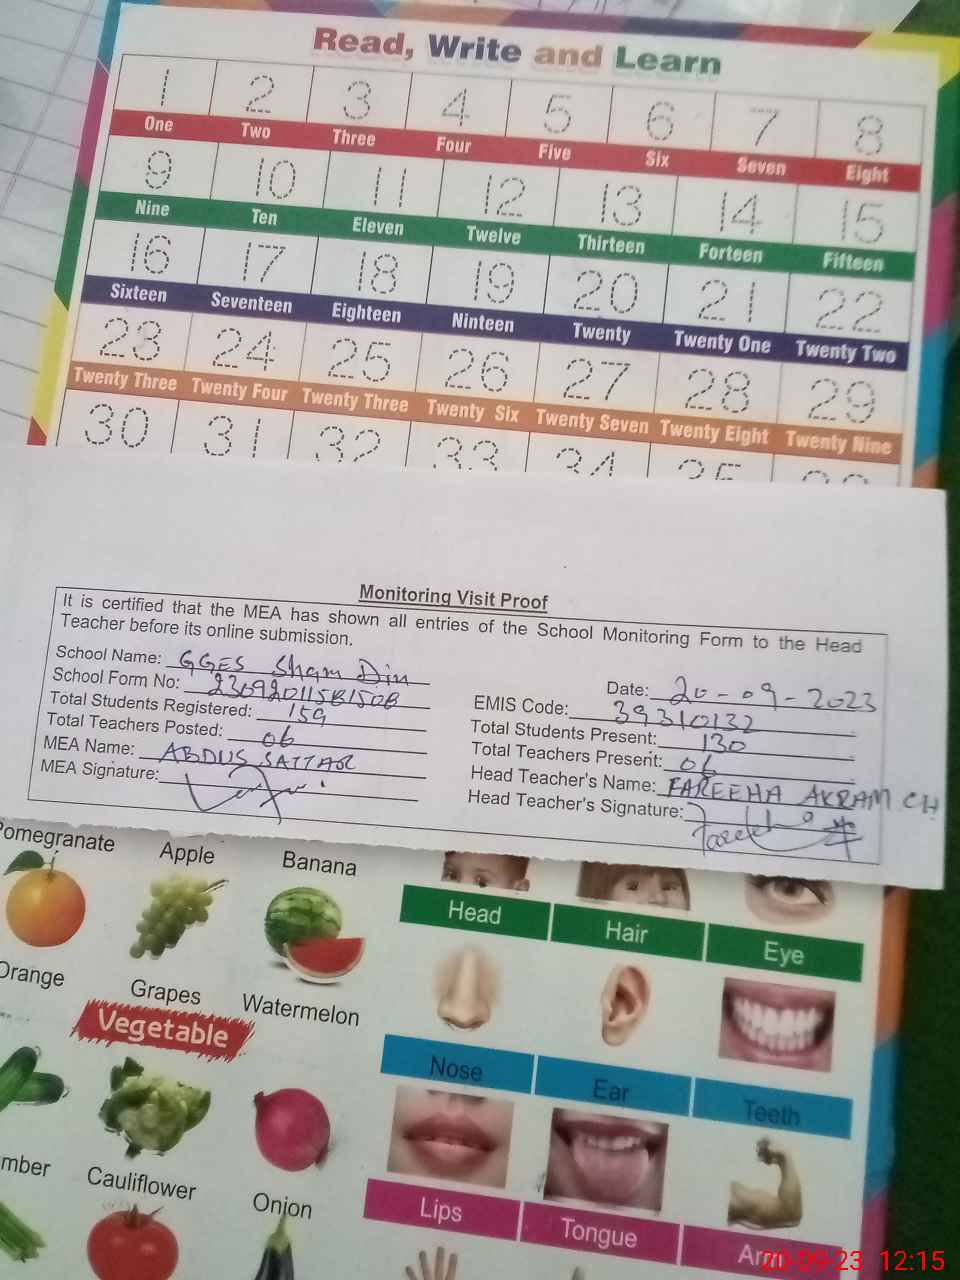 Read, Write and Learn
1 2 3 4 5 6 7 8
One Two Three Four Five Six Seven Eight
9 10 11 12 13 14 15
Nine Ten Eleven Twelve Thirteen Forteen Fifteen
16 17 18 19 20 21 22
Sixteen Seventeen Eighteen Ninteen Twenty Twenty One Twenty Two
23 24 25 26 27 28 29
Twenty Three Twenty Four Twenty Three Twenty Six Twenty Seven Twenty Eight Twenty Nine
30 31 32 33 34 35
Monitoring Visit Proof
It is certified that the MEA has shown all entries of the School Monitoring Form to the Head
Teacher before its online submission.
School Name: GGES Sham Din
Date: 20-09-2023
School Form No: 230920115B150B
EMIS Code: 39310132
Total Students Registered: 159
Total Students Present: 130
Total Teachers Posted: 06
Total Teachers Present: 06
MEA Name: ABDUS SATTAR
Head Teacher's Name: FAREEHA AKRAM CH
MEA Signature:
Head Teacher's Signature:
Pomegranate Apple Banana
Head Hair Eye
Orange Grapes Watermelon
Vegetable
Nose Ear Teeth
mber Cauliflower Onion
Lips Tongue Arm
20-09-23 12:15